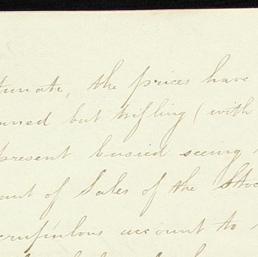 tunate, the prices have
ned but trifling (with
present busied seeing
ount of Sales of the Stoc
crupulous account to